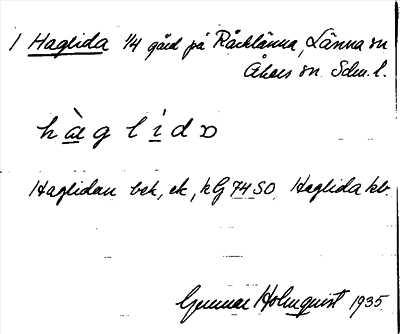 1 Haglida 1/4 gård på Råcklänna, Länna sn
Åkers sn. Sdm. l.
hàglidɔ
Haglidan bek, ek, kG 74 SO Haglida kb
Gunnar Holmquist 1935